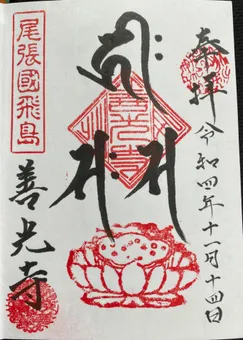 奉拝
令和四年十一月十四日
善光寺
尾張國飛島
善光寺